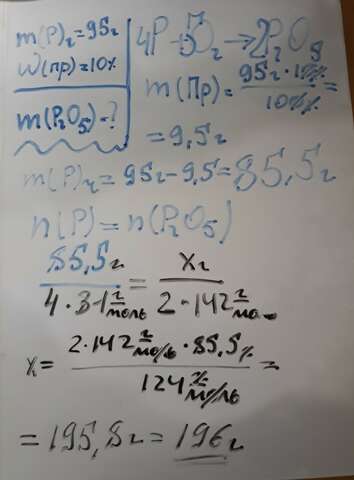 m(P)г=95г
W(пр)=10%
m(P₂O₅)-?
4P+5O₂→2P₂O₅
m(Пр)=95г·10%/100%=
=9,5г
m(P)ч=95г-9,5=85,5г
n(P)=n(P₂O₅)
85,5г/4·31г/моль=Xг/2·142г/мо
x=2·142г/моль·85,5г/124г/моль=
=195,8г=196г